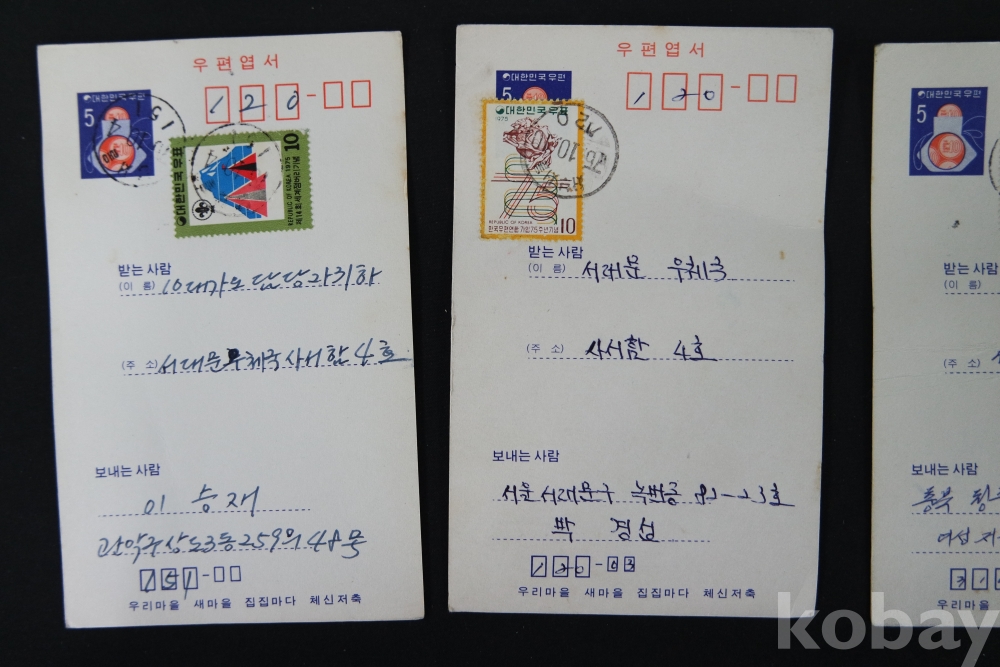 우편엽서
대한민국우편
5
120-
대한민국우표
REPUBLIC OF KOREA 1975
제14회세계잼버리기념
10
받는사람
(이 름) 10대가수 담당자귀하
(주 소) 서대문우체국사서함4호
보내는사람
이 승 재
관악구상도3동259의48호
151-
우리마을 새마을 집집마다 체신저축
우편엽서
대한민국우편
5
120-
대한민국우표
1975
REPUBLIC OF KOREA
만국우편연합 가입75주년기념
10
받는사람
(이 름) 서대문 우체국
(주 소) 사서함 4호
보내는사람
서울 서대문구 녹번동 82-23호
박 경섭
120-03
우리마을 새마을 집집마다 체신저축
대한민국우편
5
받는사람
(이 름)
(주 소)
보내는사람
우리
kobay